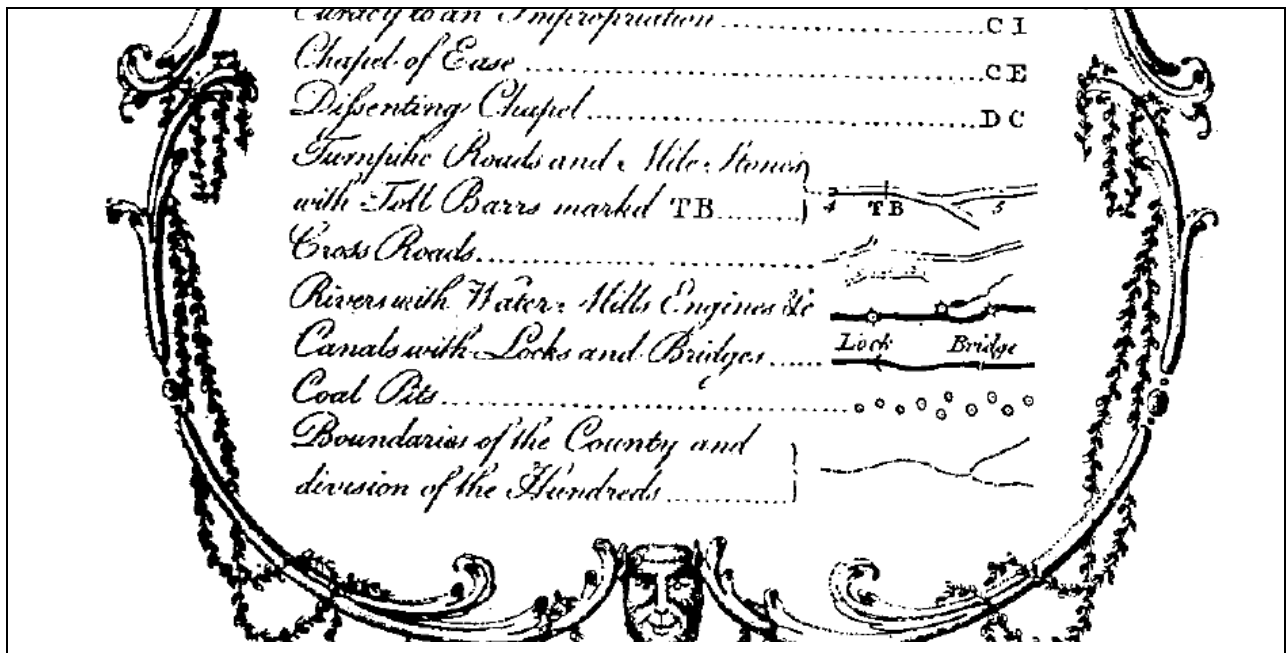 Curacy to an Impropriation ........ C I
Chapel of Ease ........ C E
Dissenting Chapel ........ D C
Turnpike Roads and Mile Stones
with Toll Barrs markd TB ........ 4 TB 5
Cross Roads ........
Rivers with Water Mills Engines &c
Lock Bridge
Canals with Locks and Bridges ......
Coal Pits ........
Boundaries of the County and
division of the Hundreds ........